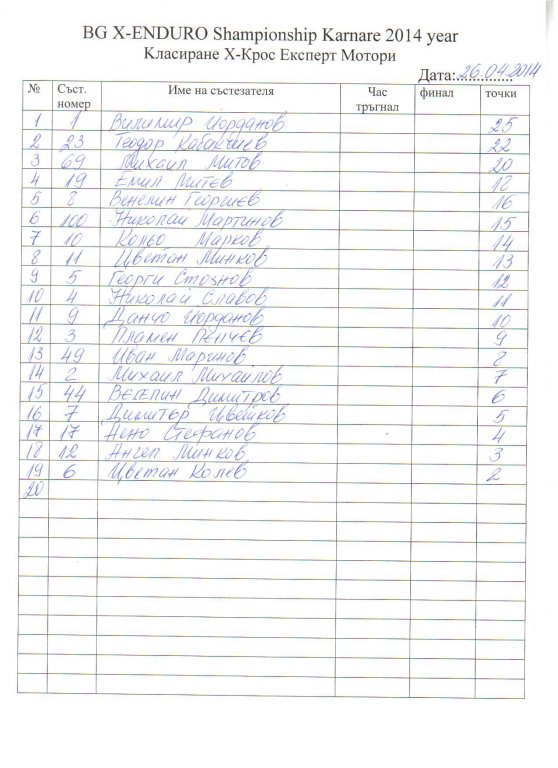 BG X-ENDURO Shampionship Karnare 2014 year
Класиране Х-Крос Експерт Мотори
Дата: 26.04.2014
№ Съст. номер Име на състезателя Час тръгнал финал точки
1 1 Вилимир Йорданов 25
2 23 Теодор Кабакчиев 22
3 69 Михаил Митов 20
4 19 Емил Митев 18
5 8 Венелин Георгиев 16
6 100 Николай Мартинов 15
7 10 Кольо Марков 14
8 11 Цветан Минков 13
9 5 Георги Стоянов 12
10 4 Николай Славов 11
11 9 Данчо Йорданов 10
12 3 Пламен Пенчев 9
13 49 Иван Маринов 8
14 2 Михаил Михайлов 7
15 44 Веселин Димитров 6
16 7 Димитър Цветков 5
17 17 Нено Стефанов 4
18 12 Ангел Минков 3
19 6 Цветан Колев 2
20